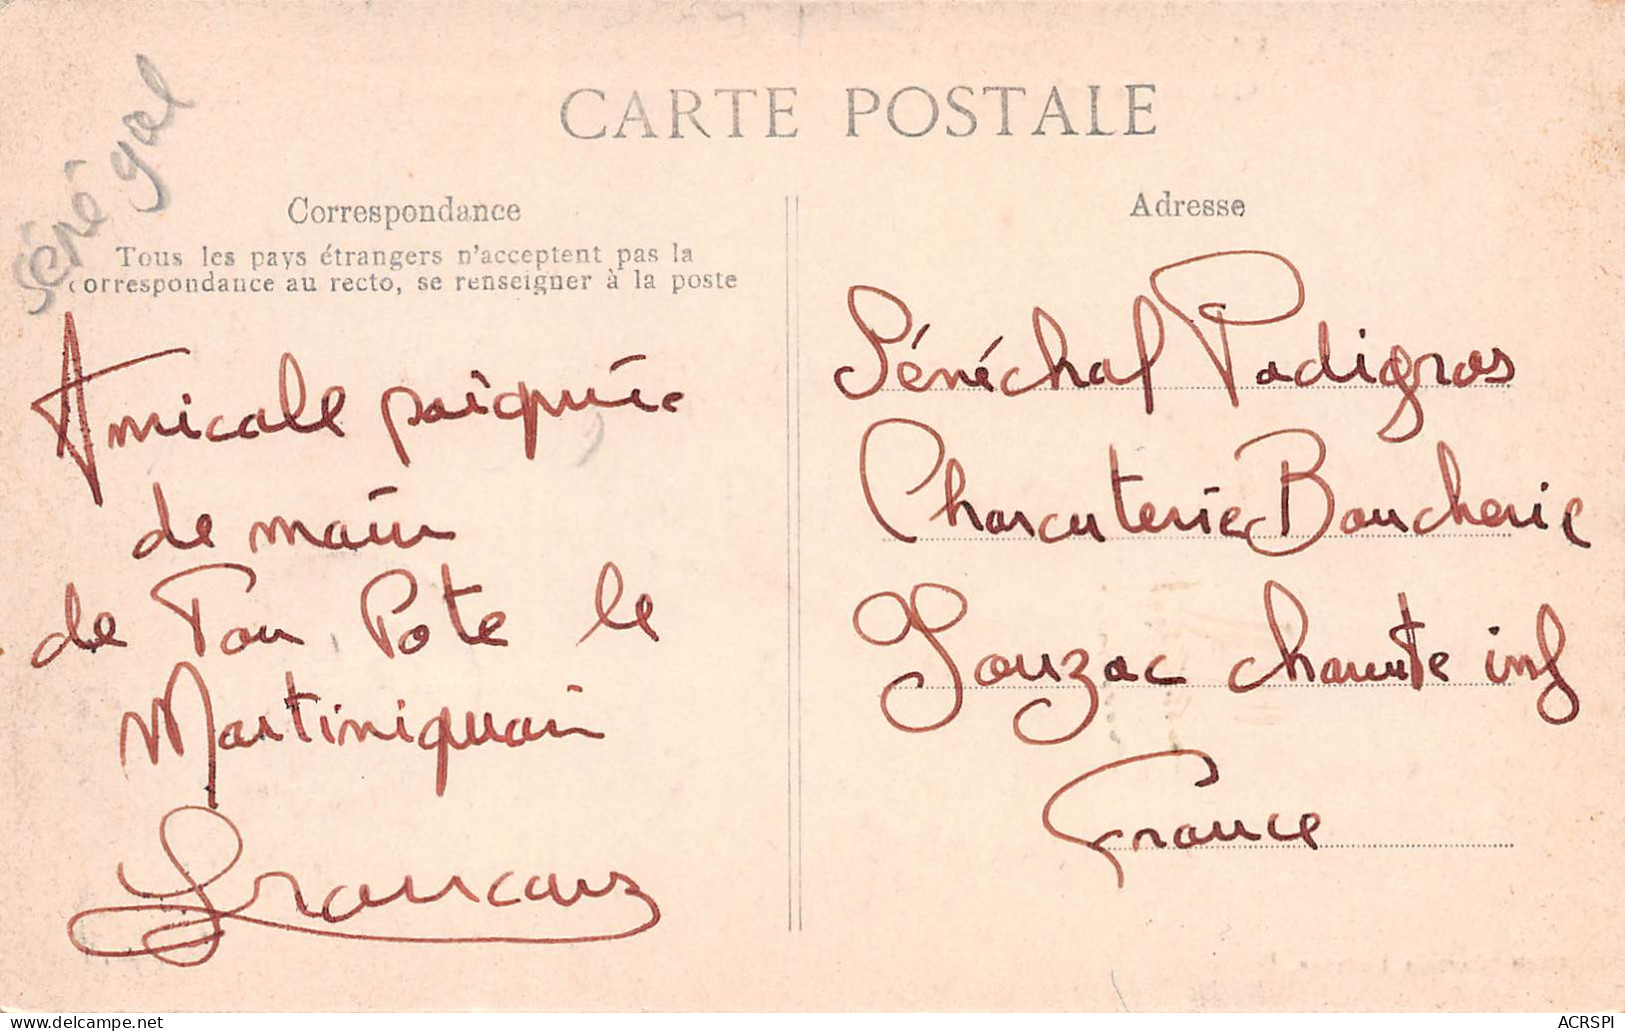 Sénégal
CARTE POSTALE
Correspondance
Tous les pays étrangers n'acceptent pas la
correspondance au recto, se renseigner à la poste
Amicale poignée
de main
de Ton Pote le
Martiniquain
Adresse
Sénéchal Padigras
Charcuterie Boucherie
Jonzac charente inf
France
delcampe.net
ACRSPI